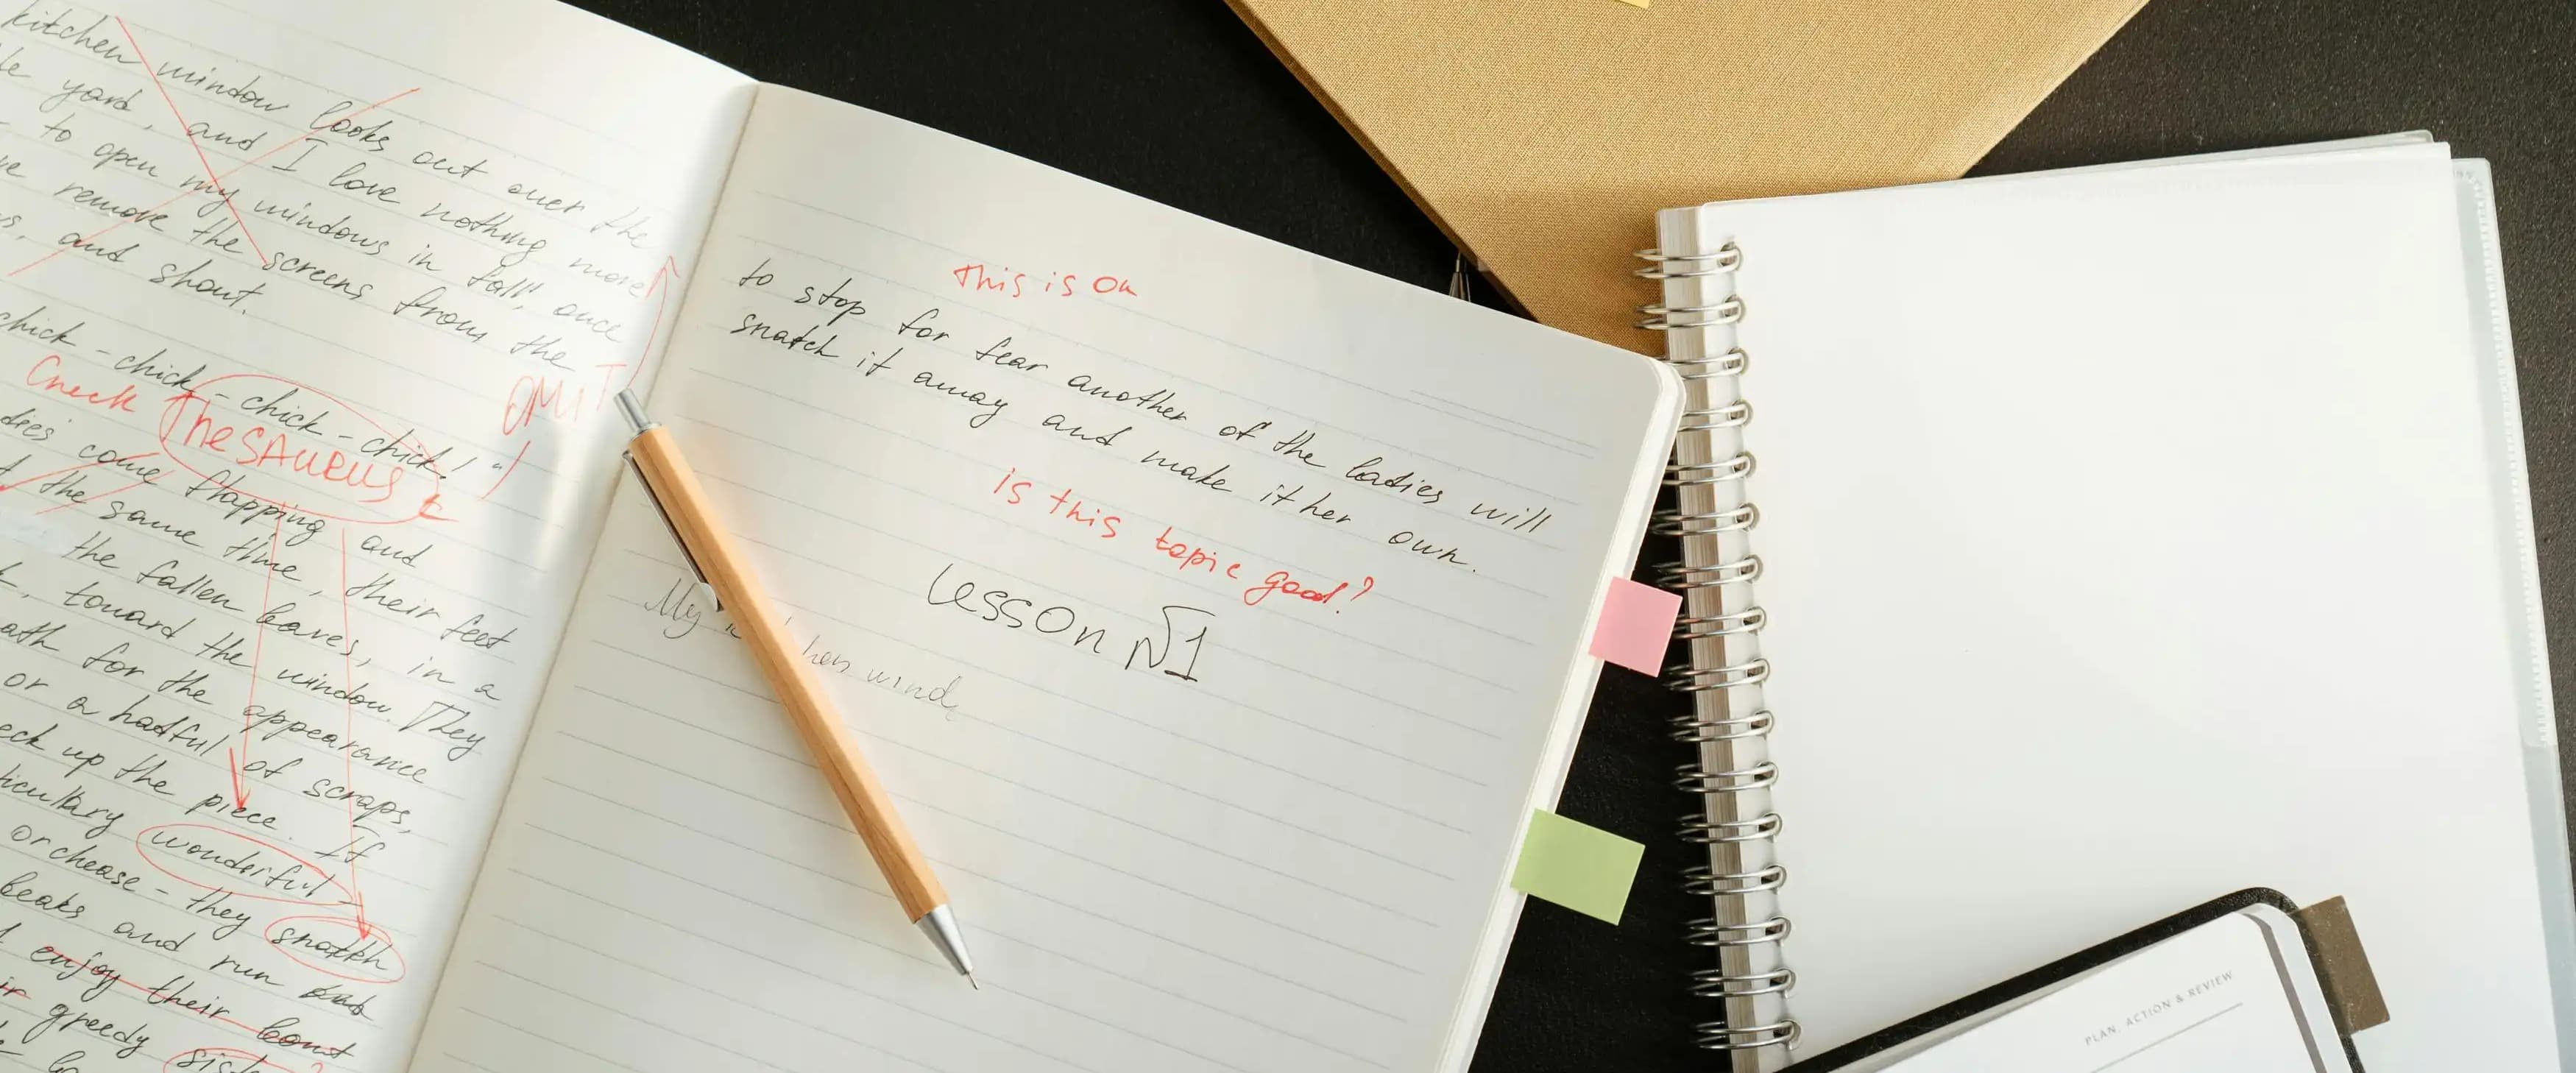 kitchen window looks out over the
yard, and I love nothing more
to open my windows in fall, once
remove the screens from the
and shout.
chick-chick-chick-chick!")
OMIT
Check
Thesaurus
come flapping and
the same time, their feet
the fallen leaves, in a
toward the window. They
for the appearance
or a hatful of scraps,
up the piece. If
wonderful -
or chease - they snatkh
beaks and run
enjoy their bount
greedy
This is on
to stop for fear another of the ladies will
snatch it away and make it her own.
is this topic good?
Lesson №1
My has wind
PLAN, ACTION & REVIEW